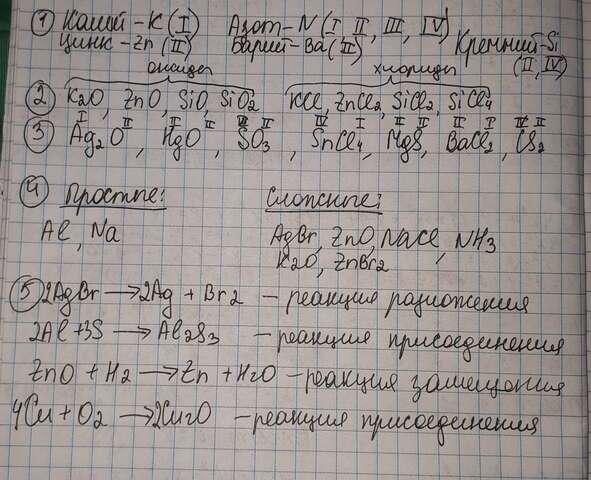 ① Калий-K(I) Азот-N(I II, III, IV)
Цинк-Zn(II) Барий-Ba(II) Кремний-Si
(II, IV)
оксиды хлориды
② K2O, ZnO, SiO, SiO2 KCl, ZnCl2, SiCl2, SiCl4
I II II II II IV I II II II I IV II
③ Ag2O, HgO, SO3, SnCl4, MgS, BaCl2, CS2
④ Простые: Сложные:
Al, Na AgBr, ZnO, NaCl, NH3
K2O, ZnBr2
⑤ 2AgBr → 2Ag + Br2 - реакция разложения
2Al+3S → Al2S3 - реакция присоединения
ZnO + H2 → Zn + H2O - реакция замещения
4Cu + O2 → 2Cu2O - реакция присоединения